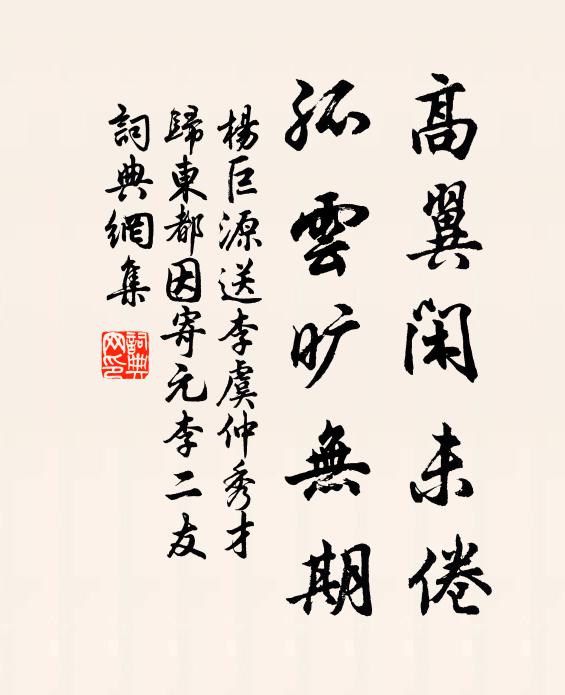 高翼閑未倦
孤雲旷無期
楊巨源送李虞仲秀才
歸東都因寄元李二友
詞典網集
詞典網印